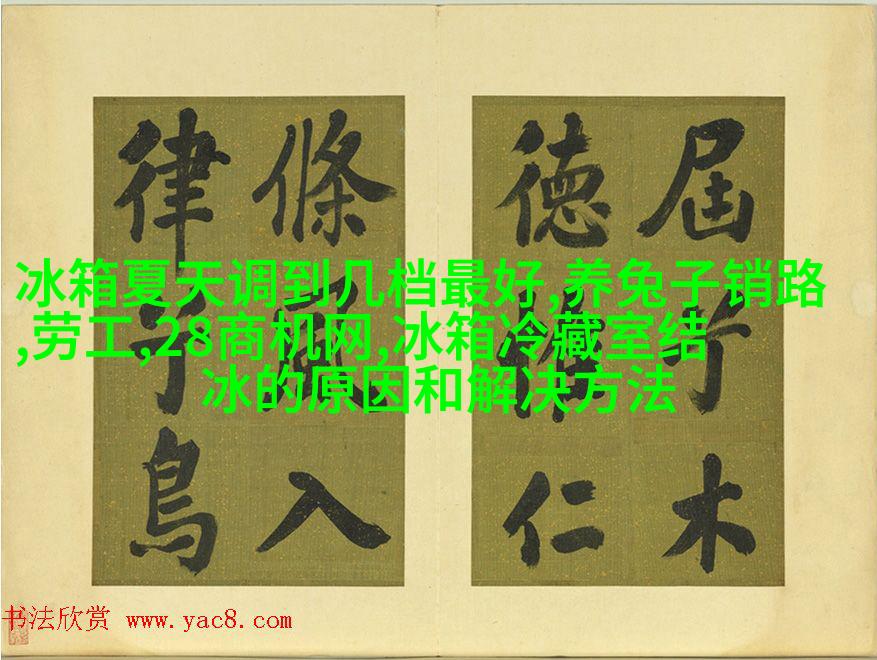 冰箱夏天调到几档最好,养兔子销路
,劳工,28商机网,冰箱冷藏室结
冰的原因和解决方法
屆木
德仁
條風入
律鳥
书法欣赏 www.yac8.com